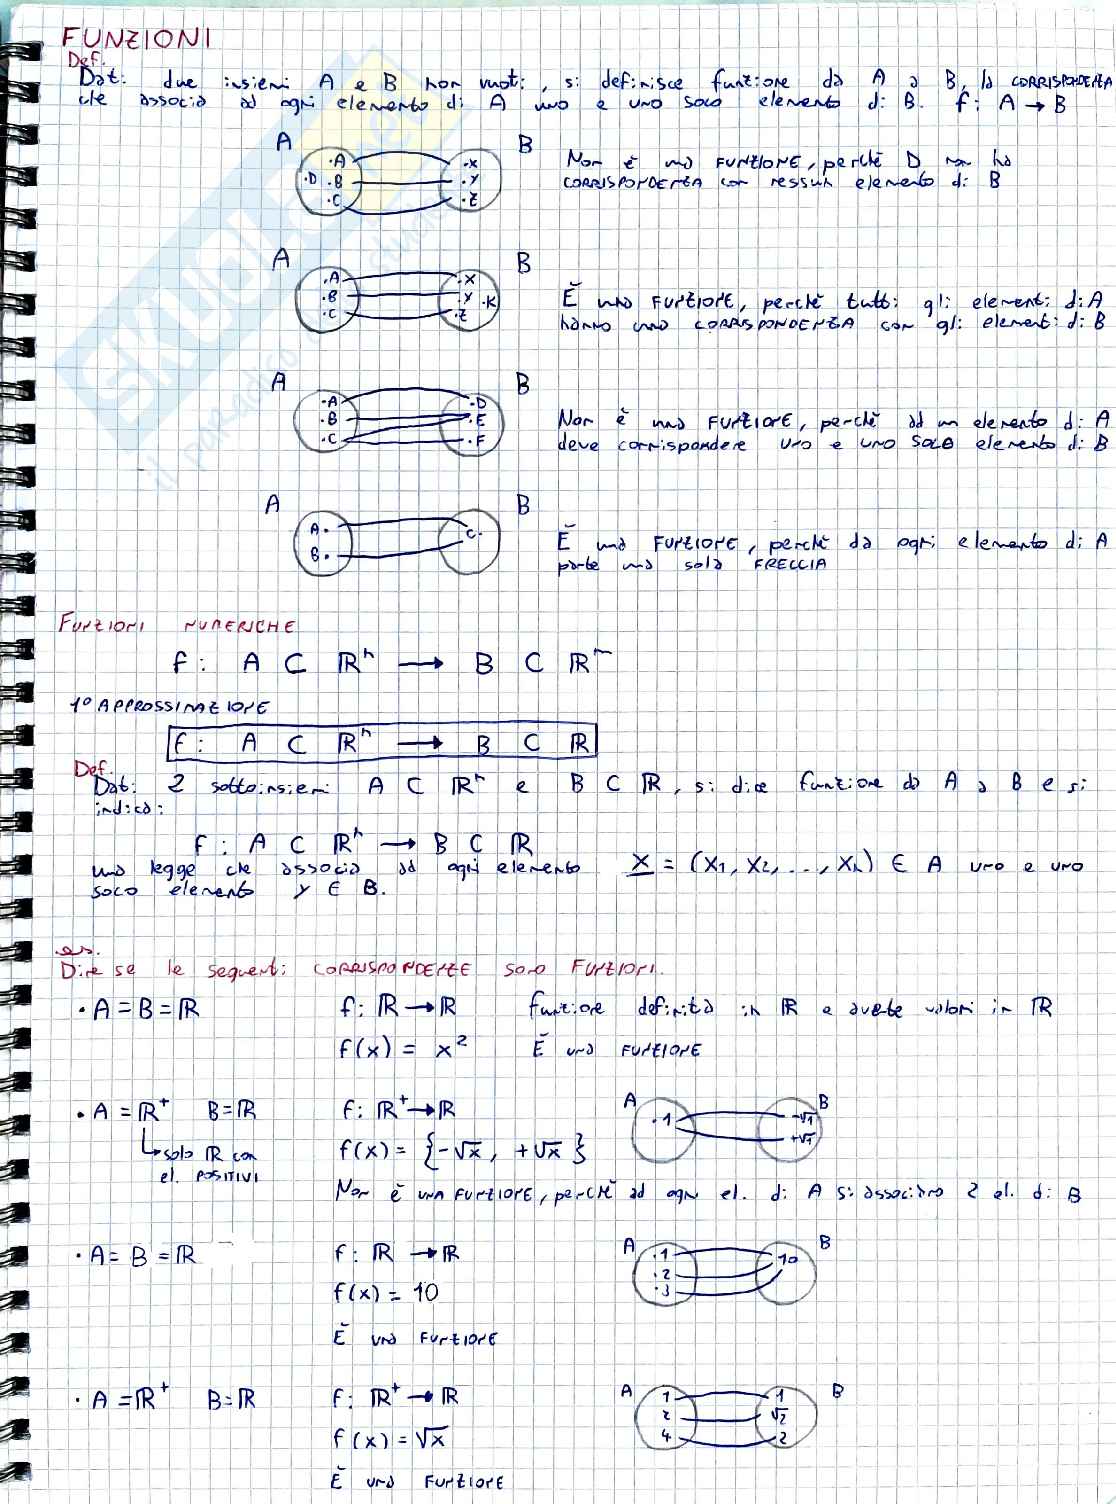 FUNZIONI
Def.
Dati due insiemi A e B non vuoti, si definisce funzione da A a B, la CORRISPONDENZA
che associa ad ogni elemento di A uno e uno solo elemento di B. f: A → B
A B
.A .X
.D .B .Y
.C .Z
Non è una FUNZIONE, perchè D non ha
CORRISPONDENZA con nessun elemento di B
A B
.A .X
.B .Y .K
.C .Z
È una FUNZIONE, perchè tutti gli elementi di A
hanno una CORRISPONDENZA con gli elementi di B
A B
.A .D
.B .E
.C .F
Non è una FUNZIONE, perchè ad un elemento di A
deve corrispondere uno e uno SOLO elemento di B
A B
A. C.
B.
È una FUNZIONE, perchè da ogni elemento di A
parte una sola FRECCIA
FUNZIONI NUMERICHE
f: A ⊂ ℝⁿ → B ⊂ ℝᵐ
1° APPROSSIMAZIONE
f: A ⊂ ℝⁿ → B ⊂ ℝ
Def.
Dati 2 sottoinsiemi A ⊂ ℝⁿ e B ⊂ ℝ, si dice funzione da A a B e si
indica:
f: A ⊂ ℝⁿ → B ⊂ ℝ
una legge che associa ad ogni elemento x = (x₁, x₂, ..., xₙ) ∈ A uno e uno
solo elemento y ∈ B.
es.
Dire se le seguenti CORRISPONDENZE sono FUNZIONI.
• A = B = ℝ f: ℝ → ℝ funzione definita in ℝ e avente valori in ℝ
f(x) = x² È una FUNZIONE
• A = ℝ⁺ B = ℝ f: ℝ⁺ → ℝ
solo ℝ con
el. POSITIVI
f(x) = {-√x, +√x}
A B
.1 -√1
+√1
Non è una FUNZIONE, perchè ad ogni el. di A si associano 2 el. di B
• A = B = ℝ f: ℝ → ℝ
f(x) = 10
È una FUNZIONE
A B
.1 10
.2
.3
• A = ℝ⁺ B = ℝ f: ℝ⁺ → ℝ
f(x) = √x
È una FUNZIONE
A B
1 1
2 √2
4 2
SKUOLA.net